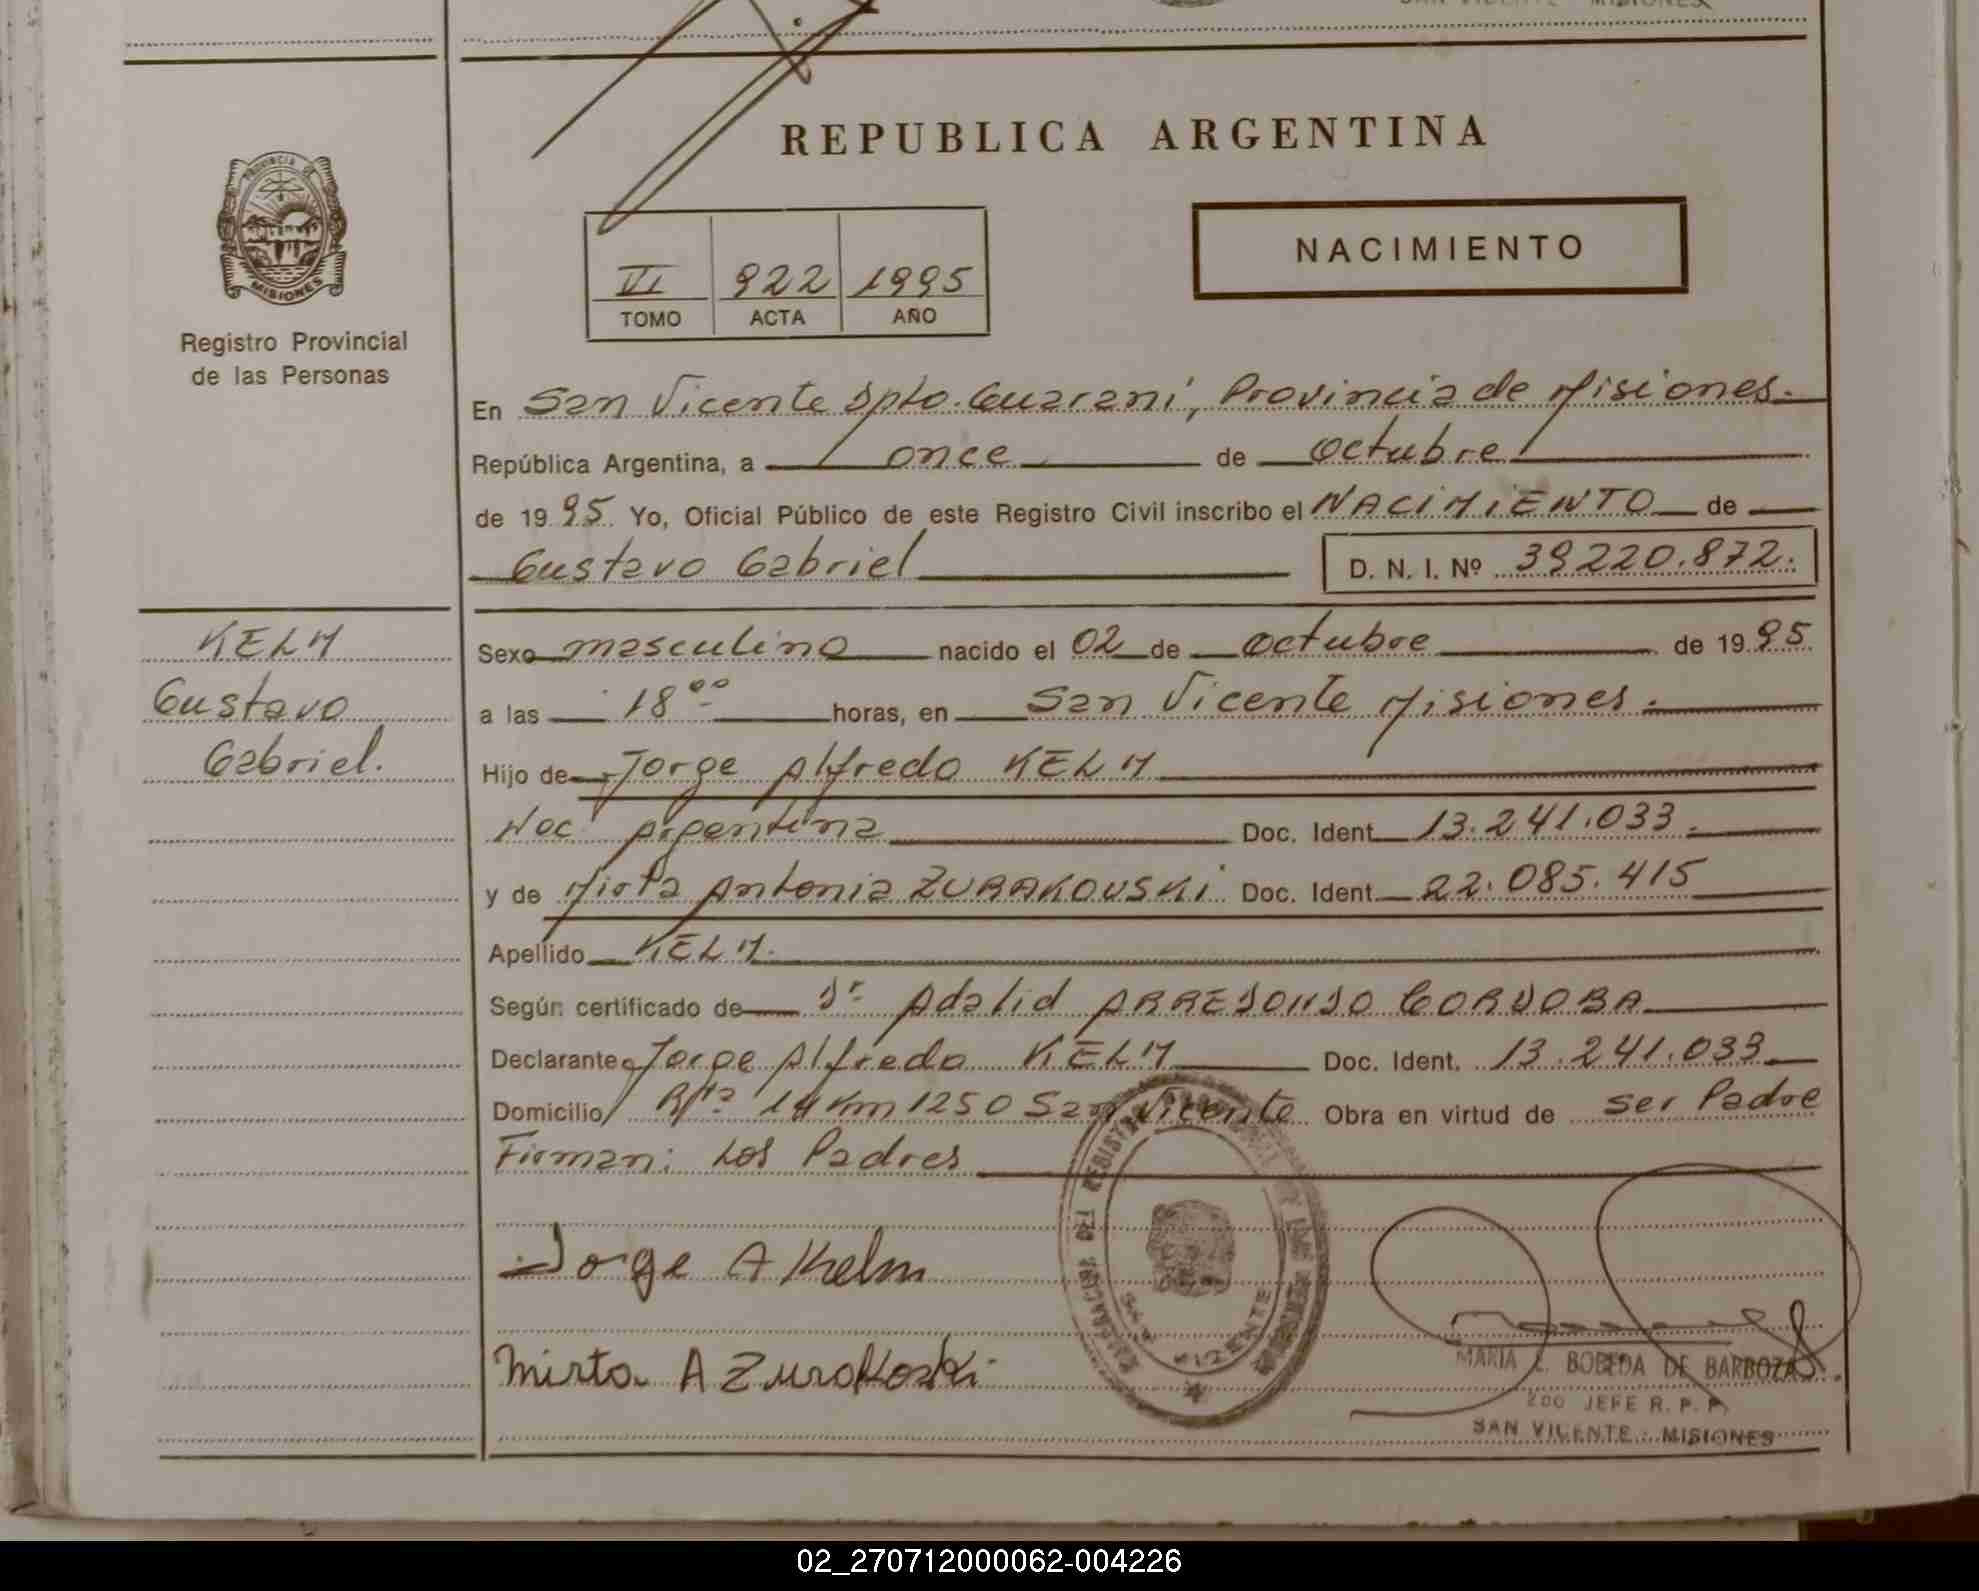 SAN VICENTE MISIONES
REPUBLICA ARGENTINA
NACIMIENTO
PROVINCIA DE
MISIONES
Registro Provincial
de las Personas
VI 922 1995
TOMO ACTA AÑO
En San Vicente Dpto. Guarani, Provincia de Misiones.
República Argentina, a once de octubre
de 1995 Yo, Oficial Público de este Registro Civil inscribo el NACIMIENTO de
Gustavo Gabriel D. N. I. Nº 39220.872.
KELM
Gustavo
Gabriel.
Sexo masculino nacido el 02 de octubre de 1995
a las 18 00 horas, en San Vicente Misiones.
Hijo de Jorge Alfredo KELM
Nac. Argentina Doc. Ident 13.241.033.
y de Mirta Antonia ZURAKOUSKI Doc. Ident 22.085.415
Apellido KELM.
Según certificado de Dr Adalid ARREDONDO CORDOBA
Declarante Jorge Alfredo KELM Doc. Ident. 13.241.033
Domicilio Rta 14 Km 1250 San Vicente Obra en virtud de ser Padre
Firman: Los Padres
Jorge A Kelm
Mirta A Zurakoski
SAN VICENTE
MARIA E. BOBEDA DE BARBOZA
2DO JEFE R. P. P.
SAN VICENTE - MISIONES
02_270712000062-004226